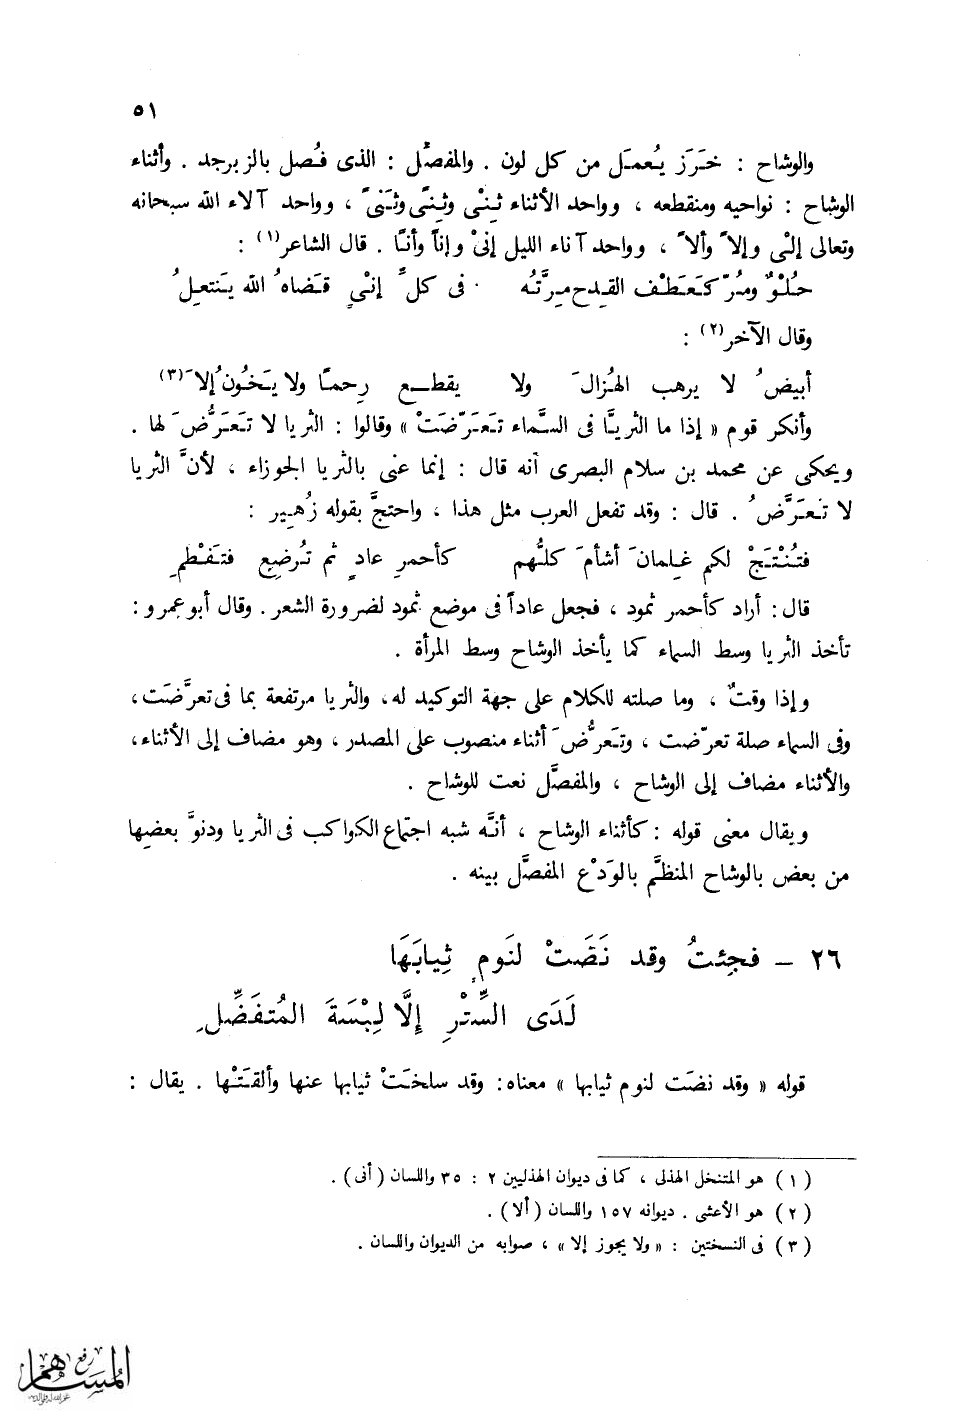 ٥١
والوشاح : خَرَز يُعمَل من كل لون . والمفصَّل : الذى فُصل بالزبرجد . وأثناء
الوشاح : نواحيه ومنقطعه ، وواحد الأثناء ثِنْى وثِنًى وثَنًى ، وواحد آلاء الله سبحانه
وتعالى إلْى وإلاً وألاً ، وواحد آناء الليل إنىْ وإناً وأنًا . قال الشاعر(١) :
حُلْوٌ ومُرّ كَعَطْف القِدح مِرَّتُه فى كلِّ إنْىٍ قَضَاهُ الله يَنتعِلُ
وقال الآخر(٢) :
أبيضُ لا يرهب الهُزالَ ولا يقطع رِحمًا ولا يَخُونُ إلاَ(٣)
وأنكر قوم « إذا ما الثريَّا فى السَّماء تَعَرّضَتْ » وقالوا : الثريا لا تَعَرُّضَ لها .
ويحكى عن محمد بن سلام البصرى أنه قال : إنما عنى بالثريا الجوزاء ، لأنَّ الثريا
لا تَعَرَّضُ . قال : وقد تفعل العرب مثل هذا ، واحتجَّ بقوله زُهير :
فتُنْتَجْ لكم غِلمانَ أشأمَ كلُّهم كأحمرِ عادٍ ثم تُرضِع فتَفْطِمِ
قال : أراد كأحمر ثمود ، فجعل عاداً فى موضع ثمود لضرورة الشعر . وقال أبو عمرو :
تأخذ الثريا وسط السماء كما يأخذ الوشاح وسط المرأة .
وإذا وقتٌ ، وما صلته للكلام على جهة التوكيد له، والثريا مرتفعة بما فى تعرَّضَت،
وفى السماء صلة تعرّضت ، وتَعرُّضَ أثناء منصوب على المصدر ، وهو مضاف إلى الأثناء،
والأثناء مضاف إلى الوشاح ، والمفصَّل نعت للوشاح .
ويقال معنى قوله : كأثناء الوشاح ، أنَّه شبه اجتماع الكواكب فى الثريا ودنوَّ بعضِها
من بعض بالوشاح المنظَّم بالوَدْع المفصَّل بينه .
٢٦ – فجِئتُ وقد نَضَتْ لنَومٍ ثِيابَهَا
لَدَى السِّتْرِ إلَّا لِبْسَةَ المُتفَضِّلِ
قوله « وقد نضَت لنوم ثيابها » معناه: وقد سلخَتْ ثيابها عنها وألقَتْها . يقال :
(١) هو المتنخل الهذلى ، كما فى ديوان الهذليين ٢ : ٣٥ واللسان (أنى) .
(٢) هو الأعشى . ديوانه ١٥٧ واللسان (ألا) .
(٣) فى النسختين : « ولا يجوز إلا » ، صوابه من الديوان واللسان .